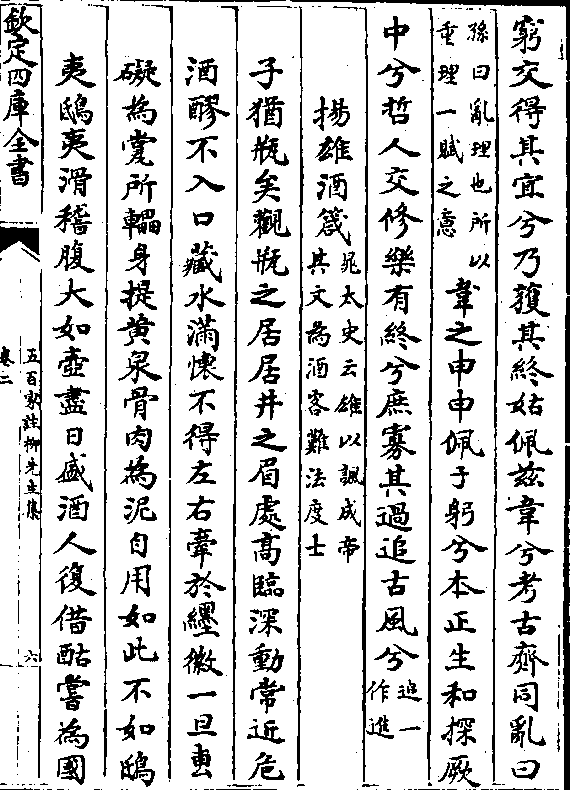 窮交得其宜兮乃獲其終姑佩兹韋兮考古齊同亂曰
孫曰亂理也所以
重理一賦之意
韋之申申佩于躬兮本正生和探厥
中兮哲人交修樂有終兮庶寡其過追古風兮
追一
作進
揚雄酒箴
晁太史云雄以諷成帝
其文為酒客難法度士
子猶瓶矣觀瓶之居居井之眉處髙臨深動常近危
酒醪不入口藏水滿懷不得左右牽於纆徽一旦叀
礙為㽀所轠身提黄泉骨肉為泥自用如此不如鴟
夷鴟夷滑稽腹大如壺盡日盛酒人復借酤嘗為國
欽定四庫全書
五百家註柳先生集
卷二
六